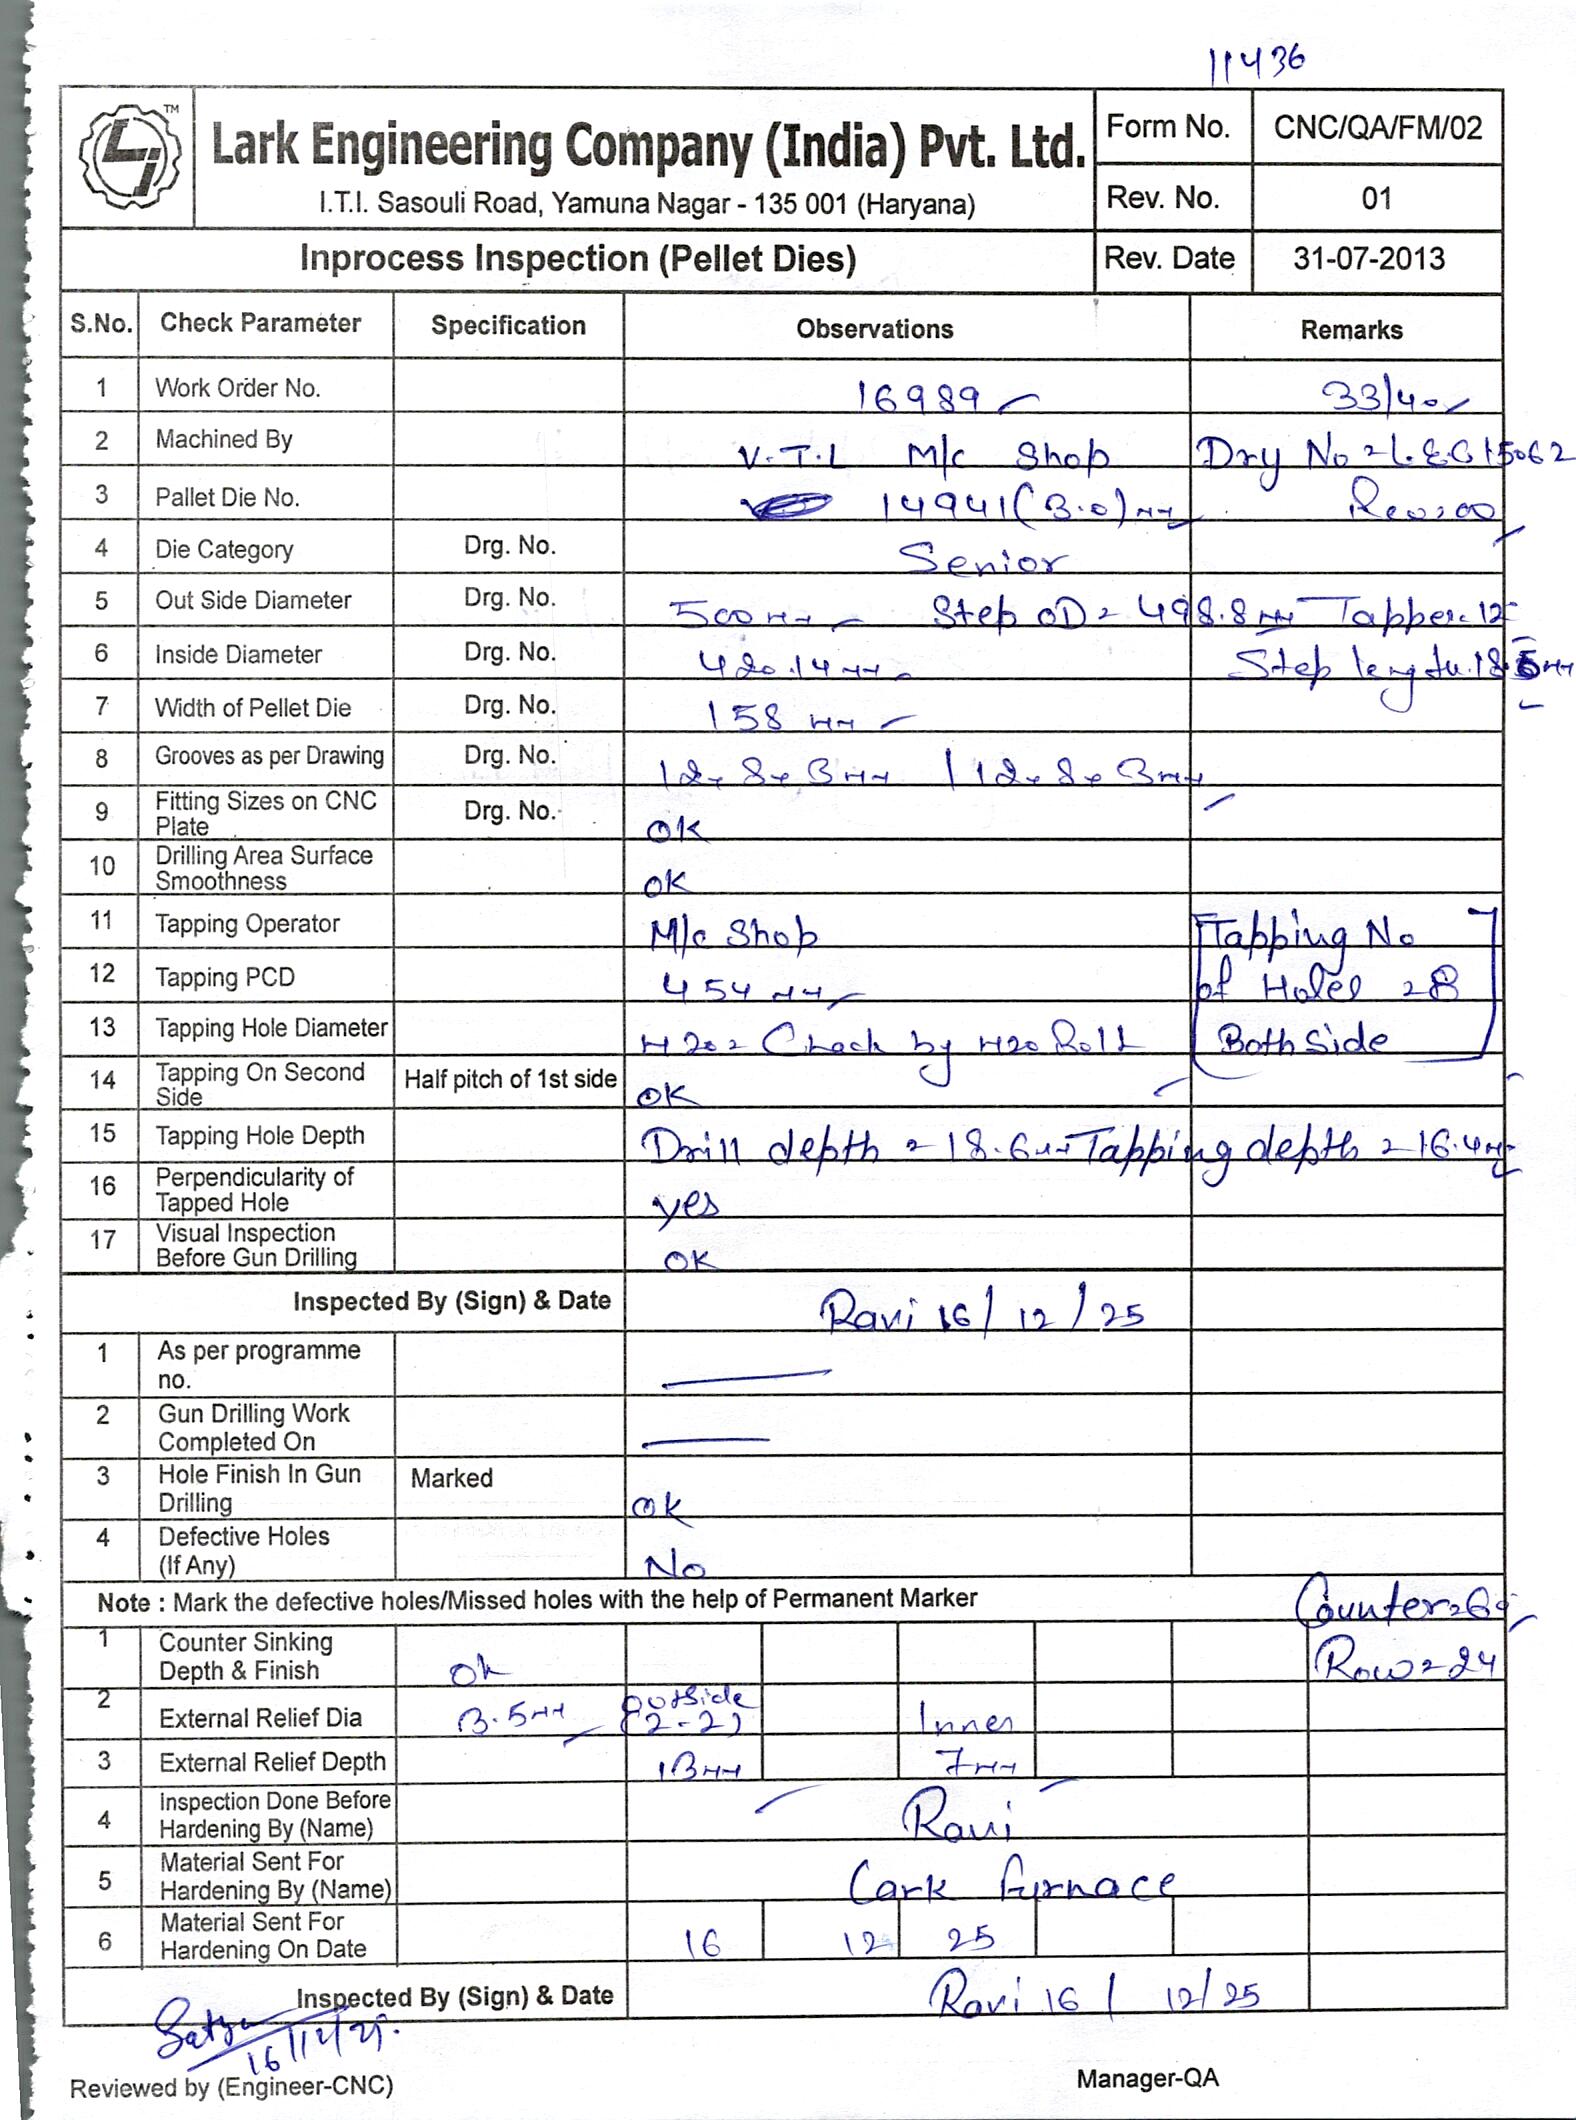 11436
TM
Lark Engineering Company (India) Pvt. Ltd.
I.T.I. Sasouli Road, Yamuna Nagar - 135 001 (Haryana)
Form No. CNC/QA/FM/02
Rev. No. 01
Inprocess Inspection (Pellet Dies) Rev. Date 31-07-2013
S.No. Check Parameter Specification Observations Remarks
1 Work Order No. 16989 33/40
2 Machined By V.T.L M/c Shop Dry No = L.E.C 15062
3 Pallet Die No. 14941 (3.0) mm Rev: 00
4 Die Category Drg. No. Senior
5 Out Side Diameter Drg. No. 500 mm Step OD = 498.8 mm Tapper = 12
6 Inside Diameter Drg. No. 420.14 mm Step length = 18.5 mm
7 Width of Pellet Die Drg. No. 158 mm
8 Grooves as per Drawing Drg. No. 12 x 8 x 3 mm / 12 x 8 x 3 mm
9 Fitting Sizes on CNC Plate Drg. No. OK
10 Drilling Area Surface Smoothness OK
11 Tapping Operator M/c Shop Tapping No
12 Tapping PCD 454 mm of Holes = 8
13 Tapping Hole Diameter M20 = Check by M20 Bolt Both Side
14 Tapping On Second Side Half pitch of 1st side OK
15 Tapping Hole Depth Drill depth = 18.6 mm Tapping depth = 16.4 mm
16 Perpendicularity of Tapped Hole yes
17 Visual Inspection Before Gun Drilling OK
Inspected By (Sign) & Date Ravi 16/12/25
1 As per programme no.
2 Gun Drilling Work Completed On
3 Hole Finish In Gun Drilling Marked OK
4 Defective Holes (If Any) No
Note : Mark the defective holes/Missed holes with the help of Permanent Marker Counter = 60
1 Counter Sinking Depth & Finish Ok Row = 24
2 External Relief Dia 3.5 mm Outside (2-2) Inner
3 External Relief Depth 13 mm 7 mm
4 Inspection Done Before Hardening By (Name) Ravi
5 Material Sent For Hardening By (Name) Lark furnace
6 Material Sent For Hardening On Date 16 12 25
Inspected By (Sign) & Date Ravi 16/12/25
16/12/25.
Reviewed by (Engineer-CNC) Manager-QA